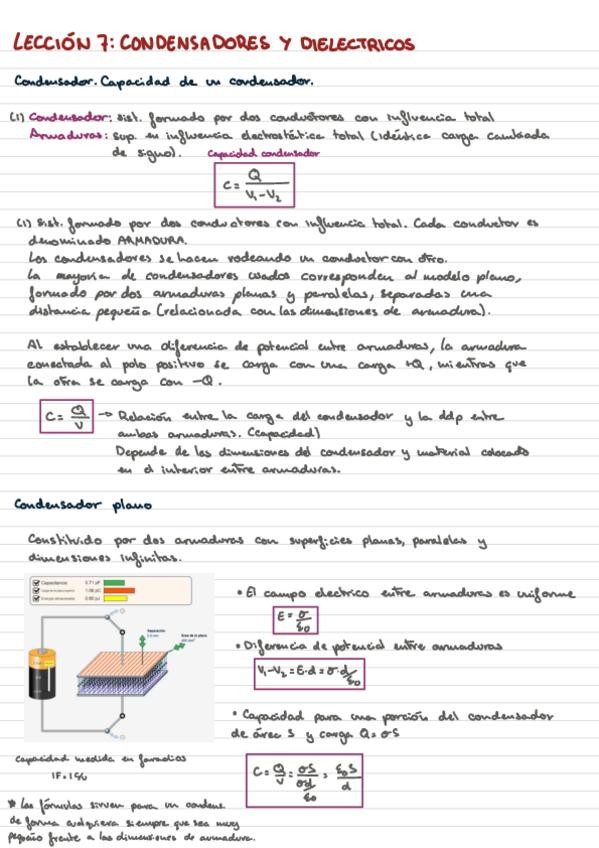 LECCIÓN 7: CONDENSADORES Y DIELECTRICOS
Condensador. Capacidad de un condensador.
(1) Condensador: sist. formado por dos conductores con influencia total
Armaduras: sup. en influencia electrostática total (idéntica carga cambiada
de signo).
Capacidad condensador
C = Q / V₁-V₂
(1) Sist. formado por dos conductores con influencia total. Cada conductor es
denominado ARMADURA.
Los condensadores se hacen rodeando un conductor con otro.
La mayoría de condensadores usados corresponden al modelo plano,
formado por dos armaduras planas y paralelas, separadas una
distancia pequeña (relacionada con las dimensiones de armadura).
Al establecer una diferencia de potencial entre armaduras, la armadura
conectada al polo positivo se carga con una carga +Q, mientras que
la otra se carga con -Q.
C = Q / V → Relación entre la carga del condensador y la ddp entre
ambas armaduras. (Capacidad)
Depende de las dimensiones del condensador y material colocado
en el interior entre armaduras.
Condensador plano
Constituido por dos armaduras con superficies planas, paralelas y
dimensiones infinitas.
Capacitancia 0.71 pF
1.06 pC
Separación
Área de la placa
• El campo electrico entre armaduras es uniforme
E = σ / ε₀
• Diferencia de potencial entre armaduras
V₁-V₂ = E·d = σ·d / ε₀
• Capacidad para una porción del condensador
de área S y carga Q = σS
C = Q / V = σS / (σd / ε₀) = ε₀S / d
Capacidad medida en faradios
* Las fórmulas sirven para un condens.
de forma cualquiera siempre que sea muy
pequeño frente a las dimensiones de armadura.